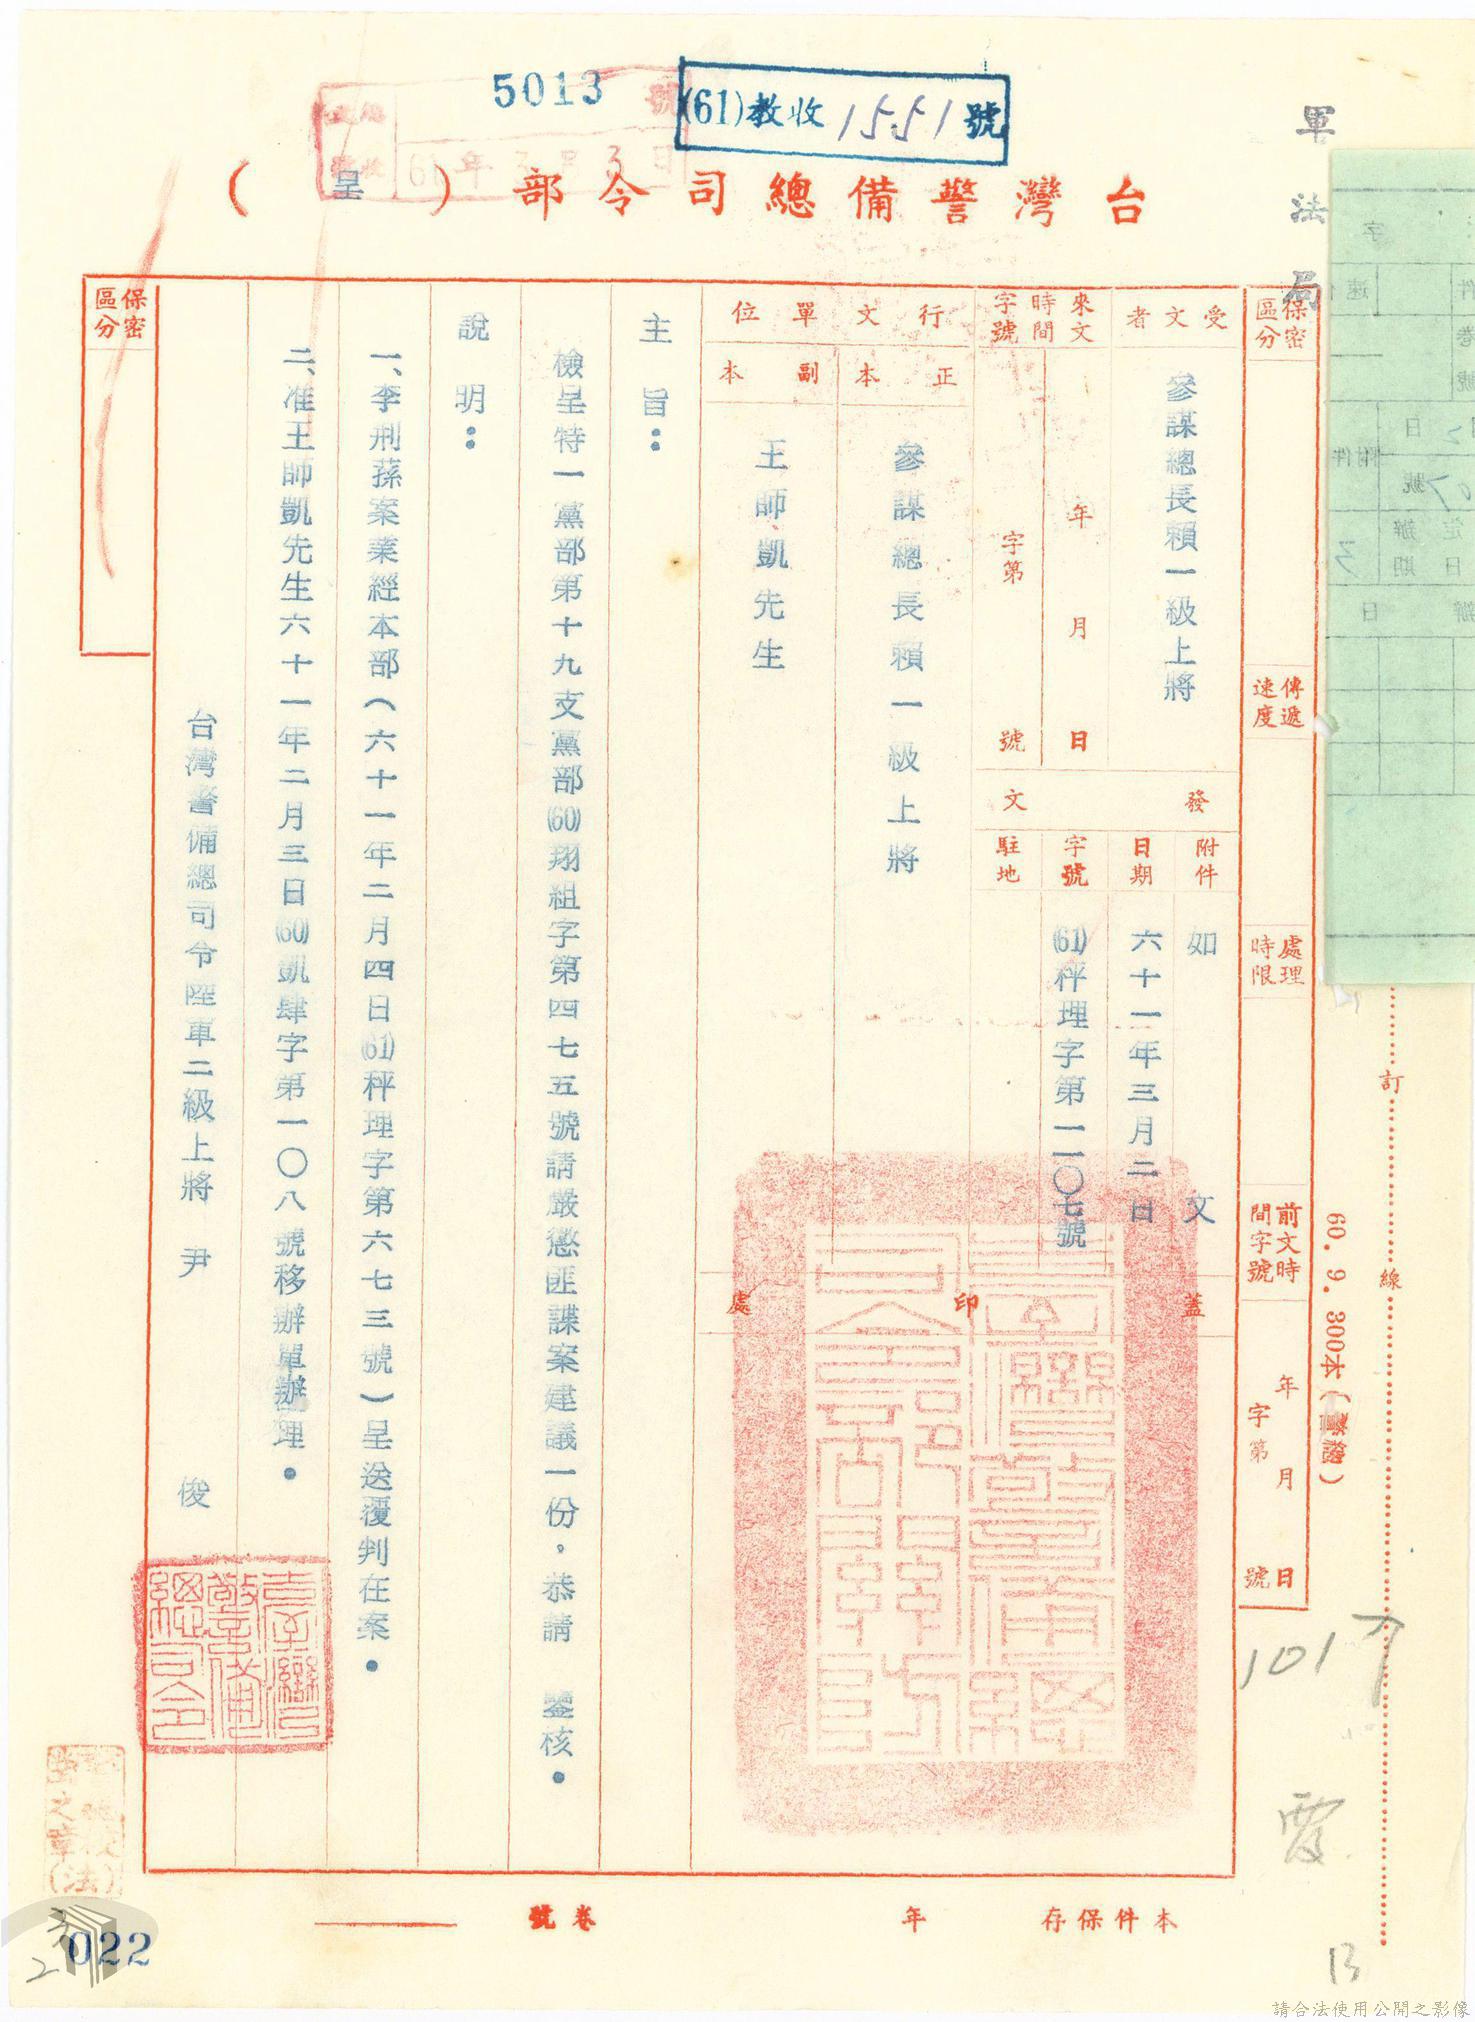 5013
號
收 61年3月3日
(61)教收1551號
軍法局
台灣警備總司令部（呈）
保密區分
傳遞速度
處理時限
前文時間字號
年 月 日
字第 號
受文者
參謀總長賴一級上將
來文時間字號
年 月 日
字第 號
發文
附件
如文
日期
六十一年三月二日
字號
(61)秤理字第一一〇七號
駐地
行文單位
正本
參謀總長賴一級上將
副本
王師凱先生
蓋印處
主旨：
檢呈特一黨部第十九支黨部(60)翔組字第四七五號請嚴懲匪諜案建議一份，恭請　鑒核。
說明：
一、李荊蓀案業經本部（六十一年二月四日(61)秤理字第六七三號）呈送覆判在案。
二、准王師凱先生六十一年二月三日(60)凱肆字第一〇八號移辦單辦理。
台灣警備總司令陸軍二級上將　尹　俊
保密區分
台灣警備總司令
訂
線
60. 9. 300本
1017
13
本件保存 年
卷號
(法)
022
請合法使用公開之影像